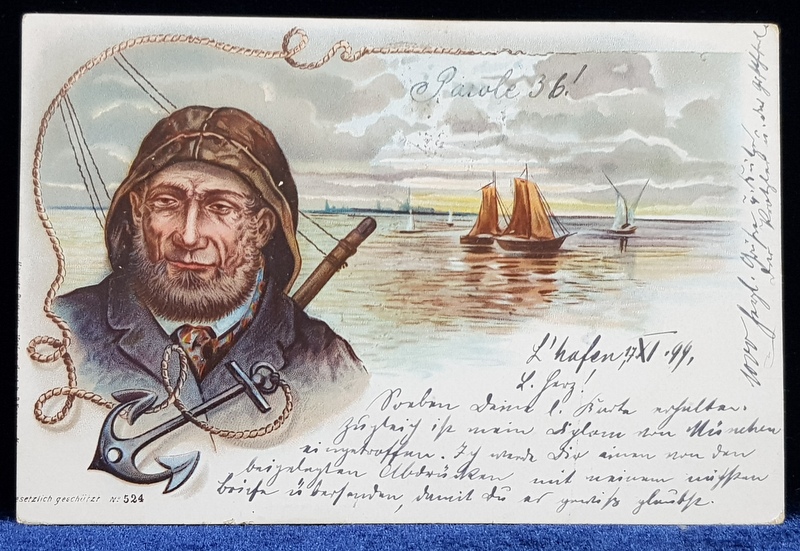 Parole 36!
L'hafen, 17/XI. 99.
L. Herz!
Soeben Deine l. Karte erhalten.
Zugleich ist mein Diplom von München
eingetroffen. Ich werde Dir einen von den
beigelegten Abdrücken mit meinem nächsten
Briefe übersenden, damit Du es gewiß glaubst.
1000 herzl. Grüße u. Küße
Dei
esetzlich geschützt No 524